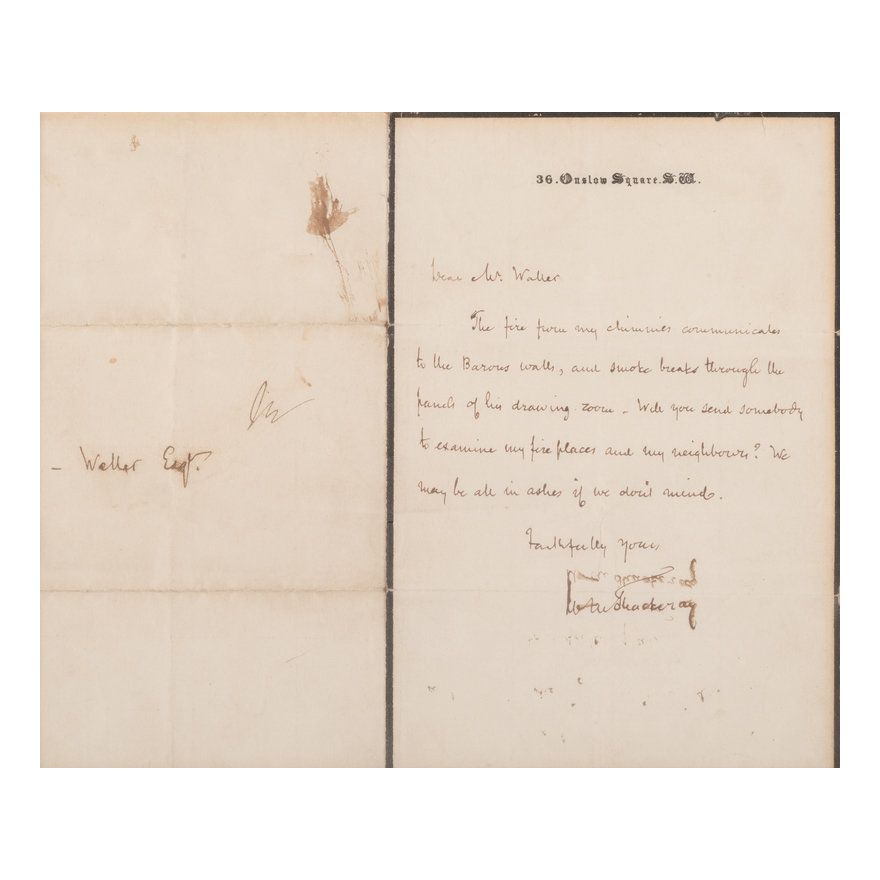 36. Onslow Square. S.W.
Dear Mr. Waller
The fire from my chimnies communicates
to the Barons walls, and smoke breaks through the
panels of his drawing-room - Will you send somebody
to examine my fireplaces and my neighbours? We
may be all in ashes if we don't mind.
Faithfully yours
WMThackeray
- Waller Esqr.